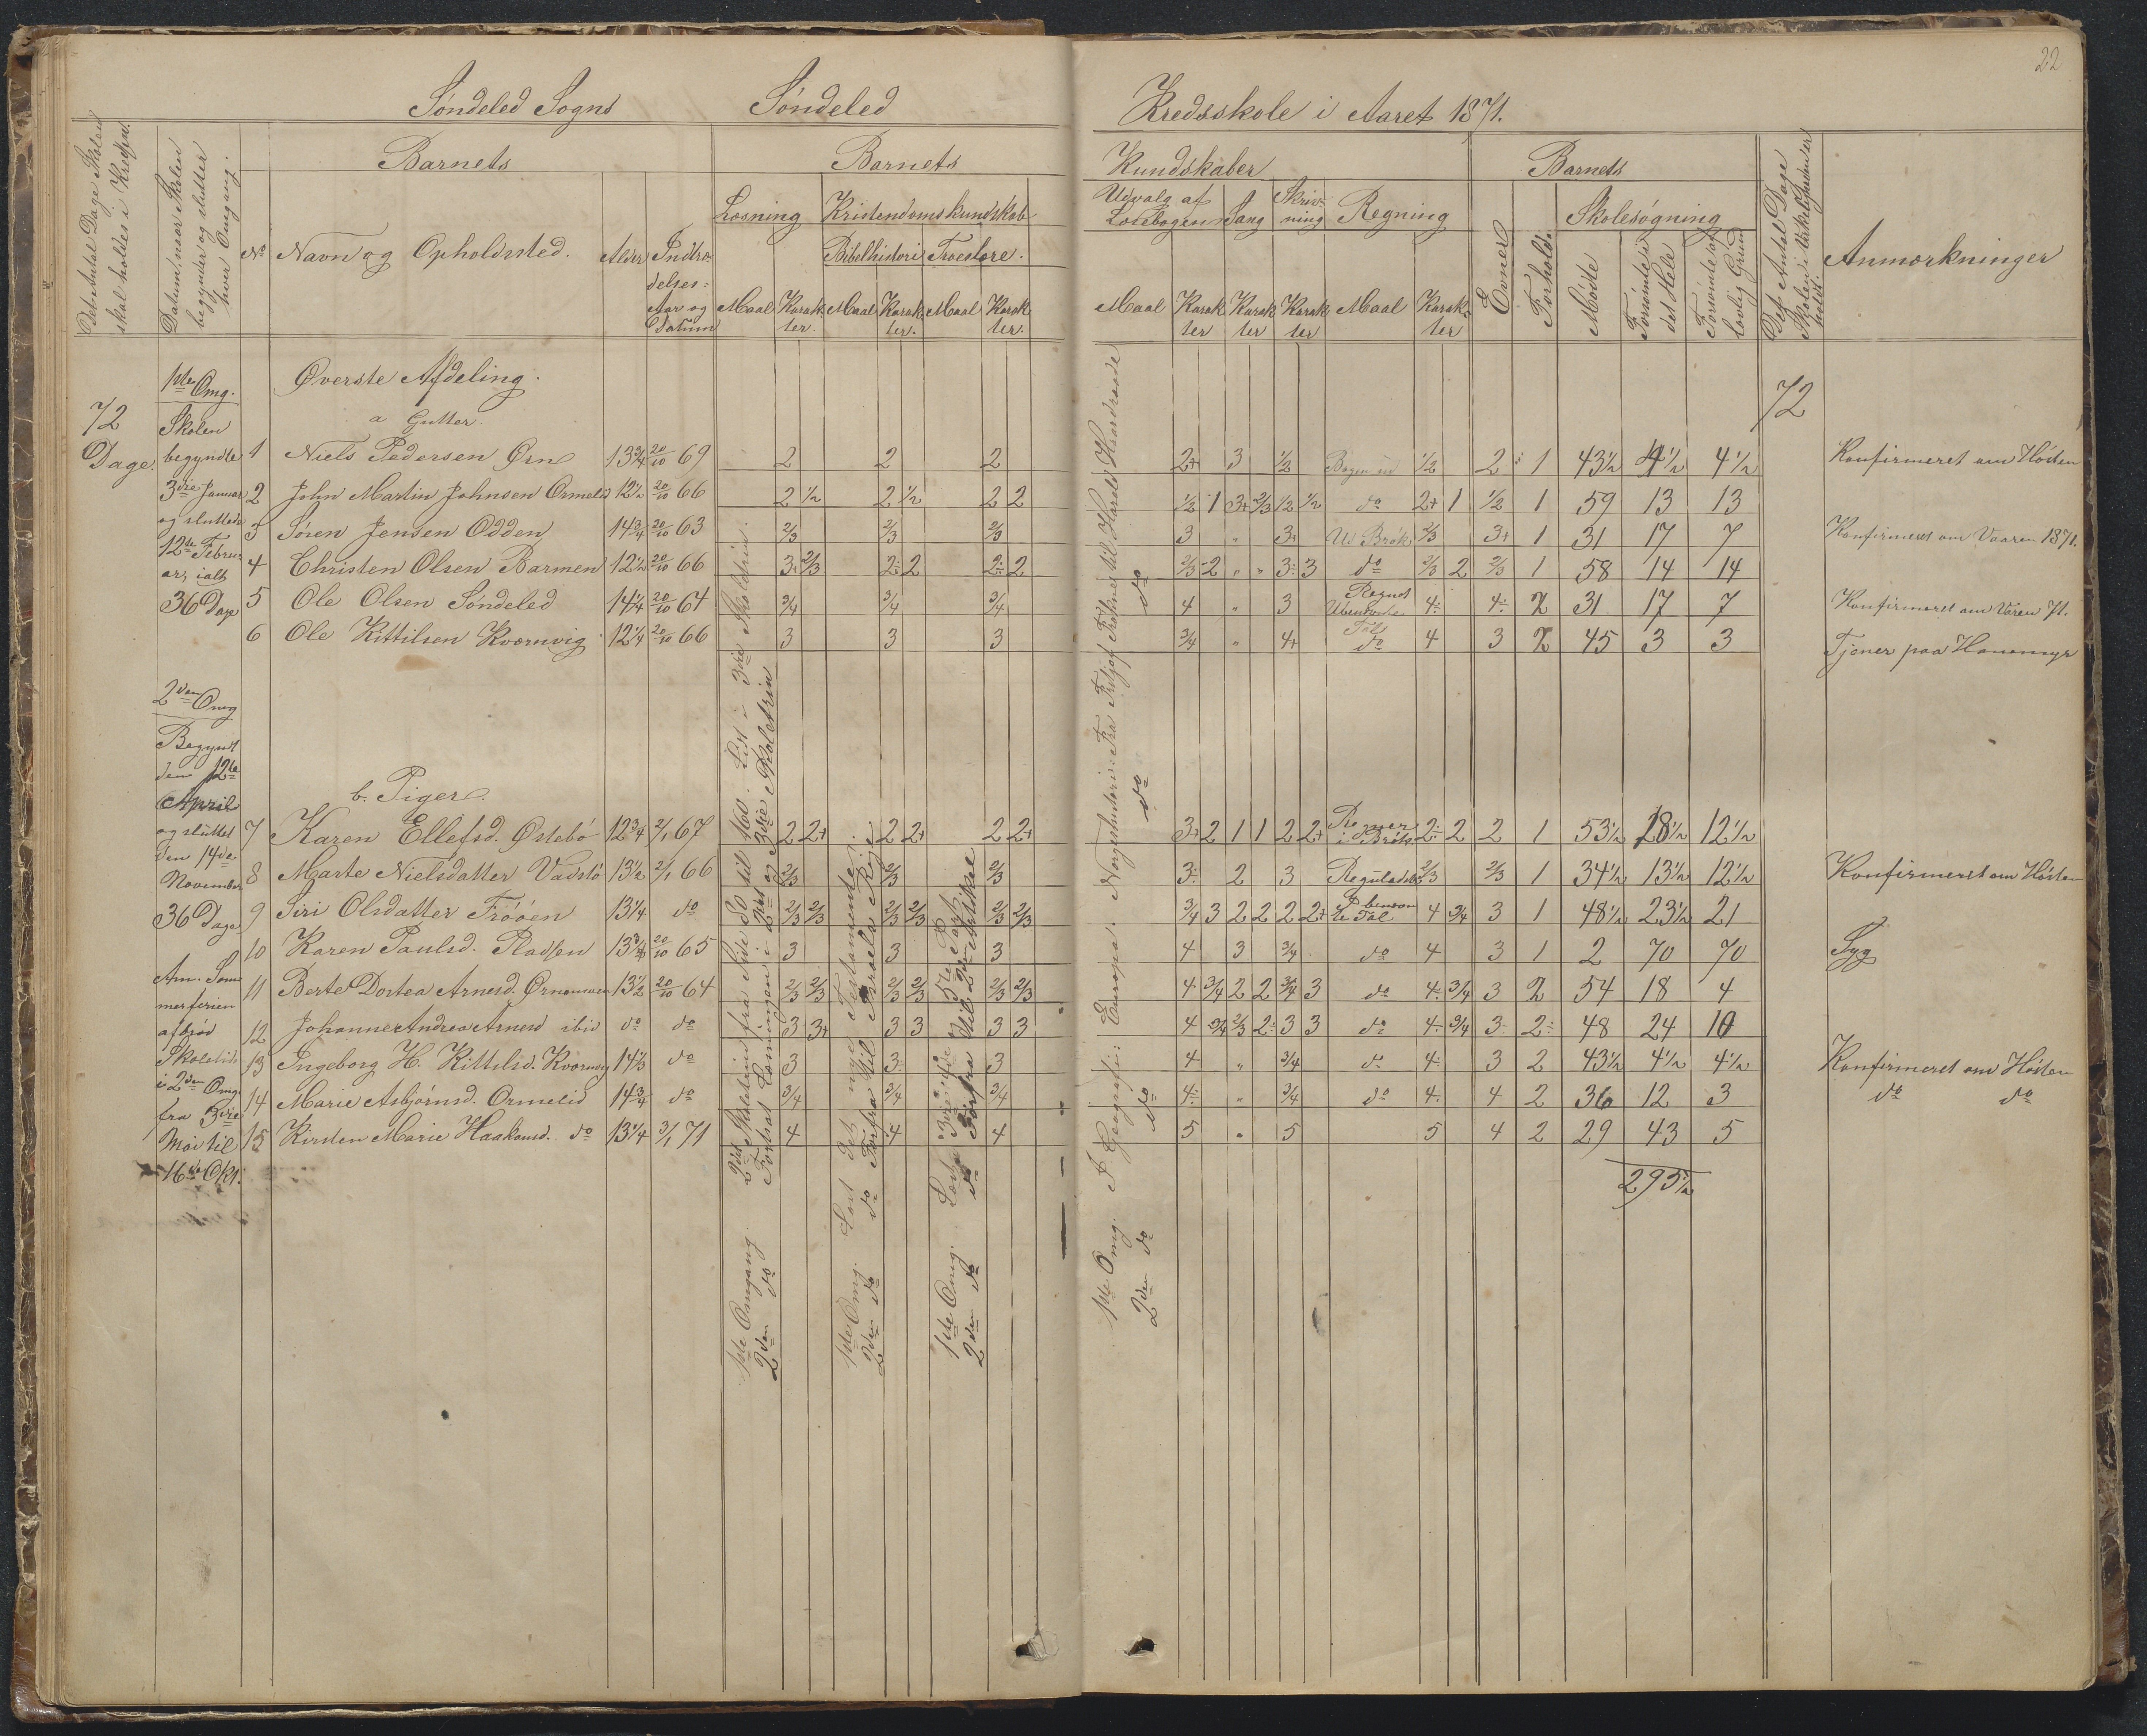 22
Søndeled Sogns Søndeled Kredsskole i Aaret 1871.
Det Antal Dage Skolen skal holdes i Kredsen.
Datum, naar Skolen begynder og slutter hver Omgang.
Barnets
No Navn og Opholdssted. Alder Indtrædelses-Aar og Datum
Barnets
Læsning Kristendomskundskab
Bibelhistorie Troeslære.
Maal Karakter. Maal Karakter. Maal Karakter.
Kundskaber
Udvalg af Læsebogen Sang Skrivning Regning
Maal Karakter Karakter Karakter Maal Karakter
Barnets
Evner Forhold. Skolesøgning
Mødte Forsømte i det Hele Forsømte af lovlig Grund
Det Antal Dage Skolen i Virkeligheden er holdt.
Anmærkninger
72 Dage.
1ste Omg.
Skolen
begyndte
3die Januar
og sluttede
12te Febru-
ar, ialt
36 Dage
2den Omg
Begyndt
den 12te
April
og sluttet
den 14de
November
36 Dage
Am. Som
merferien
afbrød
Skoletid.
i 2den Omg.
fra 3die
Mai til
16de Okt.
Øverste Afdeling.
a Gutter.
72
1 Niels Pedersen Ørn 13¾ 20/10 69 2 2 2 2+ 3 1/2 Bogen ud 1/2 2÷ 1 43½ 4½ 4½ Konfirmeret om Høsten
2 John Martin Johnsen Ormelid 12½ 20/10 66 2 1/2 2 1/2 2 2 1/2 1 3+ 2/3 1/2 1/2 do 2+ 1 1/2 1 59 13 13
3 Søren Jensen Odden 14¾ 20/10 63 2/3 2/3 2/3 3 " 3+ Ud Brøk 2/3 3+ 1 31 17 7 Konfirmeret om Vaaren 1871.
4 Christen Olsen Barmen 12½ 20/10 66 3+ 2/3 2÷ 2 2÷ 2 2/3 2 " " 3÷ 3 do 2/3 2 2/3 1 58 14 14
5 Ole Olsen Søndeled 14¼ 20/10 64 3/4 3/4 3/4 4 " 3 Regnet Ubenævnte Tal 4÷ 4÷ 2 31 17 7 Konfirmeret om Våren 71.
6 Ole Kittilsen Kvernvig 12¼ 20/10 66 3 3 3 3/4 " 4+ do 4 3 2 45 3 3 Tjener paa Hanemyr
b. Piger.
7 Karen Ellefsd. Østebø 12¾ 2/1 67 2 2+ 2 2+ 2 2+ 3+ 2 1 1 2 2+ Regner i Brøk 2÷ 2 2 1 53½ 18½ 12½
8 Marte Nielsdatter Vadstø 13½ 2/1 66 2/3 2/3 2/3 3÷ 2 3 Reguladetri 2/3 2/3 1 34½ 13½ 12½ Konfirmeret om Høsten
9 Siri Olsdatter Frøøen 13¼ do 2/3 2/3 2/3 2/3 2/3 2/3 3/4 3 2 2 2 2+ Tal 4 3/4 3 1 48½ 23½ 21
10 Karen Paulsd. Pladsen 13¾ 20/10 65 3 3 3 4 3 3/4 do 4 3 1 2 70 70 Syg
11 Berte Dortea Arnesd. 13½ 20/10 64 2/3 2/3 2/3 2/3 2/3 2/3 4 3/4 2 2 3/4 3 do 4÷ 3/4 3 2 54 18 4
12 Johanne Andrea Arnesd ibid do do 3 3+ 3 3 3 3 4 3/4 2/3 2÷ 3 3 do 4÷ 3/4 3÷ 2÷ 48 24 10
13 Ingeborg H. Kittilsd. Kvernvig 14⅓ do 3 3÷ 3 4 " 3/4 do 4÷ 3 2 43½ 4½ 4½ Konfirmeret om Høsten
14 Marie Asbjørnsd. Ormelid 14¾ do 3/4 3/4 3/4 4÷ " 3/4 do 4÷ 4 2 36 12 3 do do
15 Kirsten Marie Haakonsd. do 13¼ 3/1 71 4 4 4 5 " 5 5 4 2 29 43 5
295½
1ste Omgang 2det Skoletrin fra Side 80 til 160. Læst i 3die Skoletrin.
2den do Fortsat Læsningen i 2det og 3die Skoletrin
1ste Omg. Læst det nye Testamente.
2den do do Forfra til Israels Rige
1ste Omg. Læst 3die, 4de 5te Part.
2den do do Forfra til 2den Artikkel
1ste Omg. I Geografi: Europa. Norgeshistorie: Fra Fridjof Frøkne til Harald Haardraade
2den do do do do